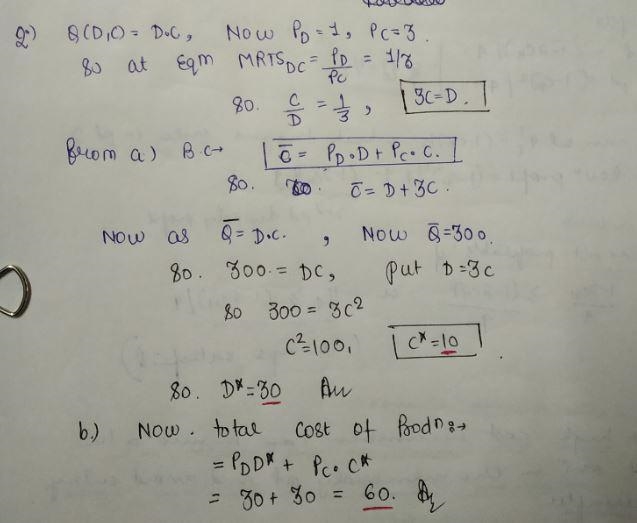 2) Q(D,C) = D.C, Now PD = 1, PC = 3.
So at Eqm MRTS DC = PD/PC = 1/3
So. C/D = 1/3, 3C = D.
From a) B.C→ C̄ = PD.D + PC.C.
So. C̄ = D + 3C.
Now as Q̄ = D.C. , Now Q̄ = 300.
So. 300. = DC, put D = 3C
So 300 = 3C²
C² = 100, C* = 10
So. D* = 30 Ans
b.) Now. total cost of Prodn:→
= PDD* + PC. C*
= 30 + 30 = 60. Ans